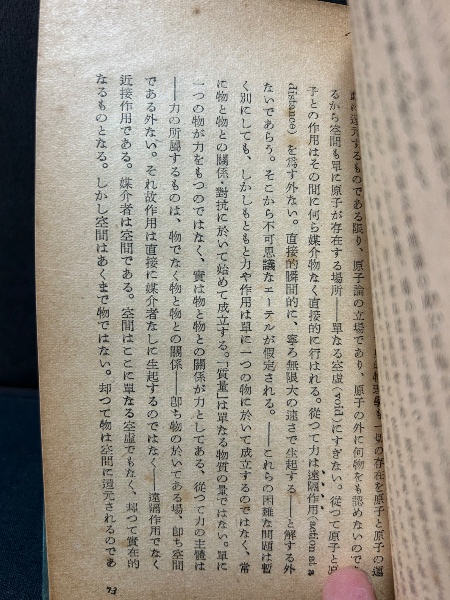 も一切の存在を原子と原子の運
に還元するものである限り、原子論の立場であり、原子の外に何物をも認めないのであ
るから空間も單に原子が存在する場所――單なる空虚(void)にすぎない。從つて原子と原
子との作用はその間に何ら媒介物なく直接的に行はれる。從つて力は遠隔作用(action at a
distance)を爲す外ない。直接的瞬間的に、寧ろ無限大の速さで生起する――と解する外
ないであらう。そこから不可思議なエーテルが假定される。――これらの困難な問題は暫
く別にしても、しかしもともと力や作用は單に一つの物に於いて成立するのではなく、常
に物と物との關係・對抗に於いて始めて成立する。「質量」は單なる物質の量ではない。單に
一つの物が力をもつのではなく、實は物と物との關係が力としてある、從つて力の主體は
――力の所屬するものは、物でなく物と物との關係――卽ち物の於いてある場、卽ち空間
である外ない。それ故作用は直接に媒介者なしに生起するのではなく――遠隔作用でなく
近接作用である。媒介者は空間である。空間はここに單なる空虚でもなく、却つて實在的
なるものとなる。しかし空間はあくまで物ではない。却つて物は空間に還元されるのであ
73